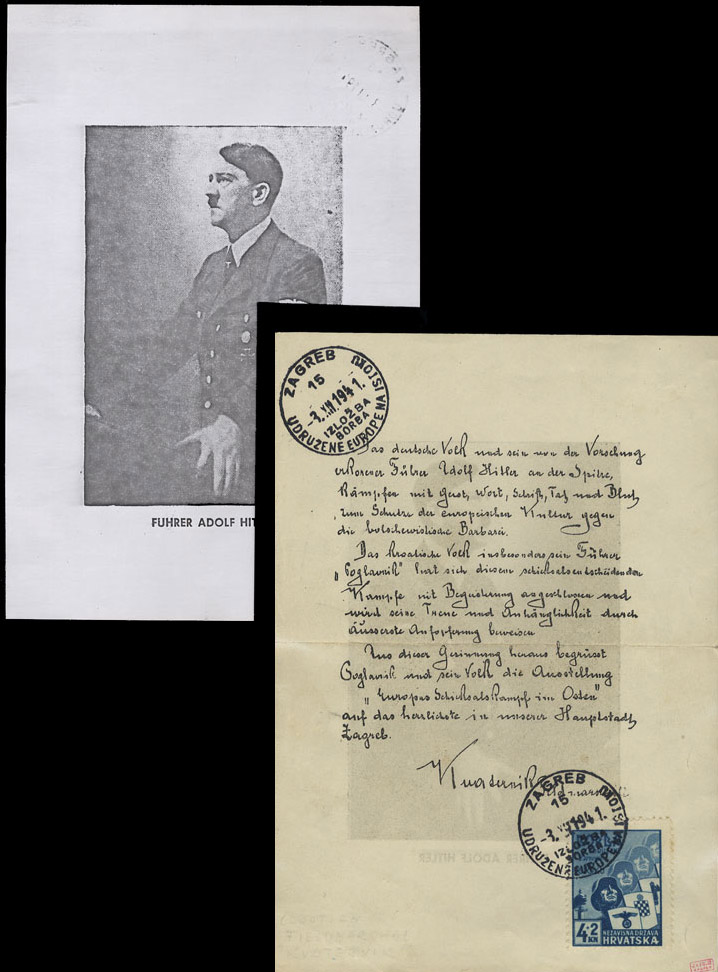 FUHRER ADOLF HIT
ZAGREB
15
-3.XII.1941.
IZLOŽBA
BORBA
UDRUŽENE EUROPE NA ISTOKU
Das deutsche Volk und sein von der Vorsehung
erkorener Führer Adolf Hitler an der Spitze,
Kämpfen mit Geist, Wort, Schrift, Tat und Blut,
zum Schutze der europeischen Kultur gegen
die bolschewistische Barbarei.
Das Kroatische Volk insbesondere sein Führer
„Poglavnik" hat sich diesem schicksalsentscheidenden
Kampfe mit Begeisterung angeschlossen und
wird seine Treue und Anhänglichkeit durch
äusserste Aufopferung beweisen
Aus dieser Gesinnung heraus begrüsst
Poglavnik und sein Volk die Ausstellung
„Europas Schicksalskampf im Osten"
auf das herzlichste in unserer Hauptstadt,
Zagreb.
Kvaternik
ZAGREB
15
-3.XII.1941.
IZLOŽBA
BORBA
UDRUŽENE EUROPE NA ISTOKU
4+2
KN
NEZAVISNA DRŽAVA
HRVATSKA